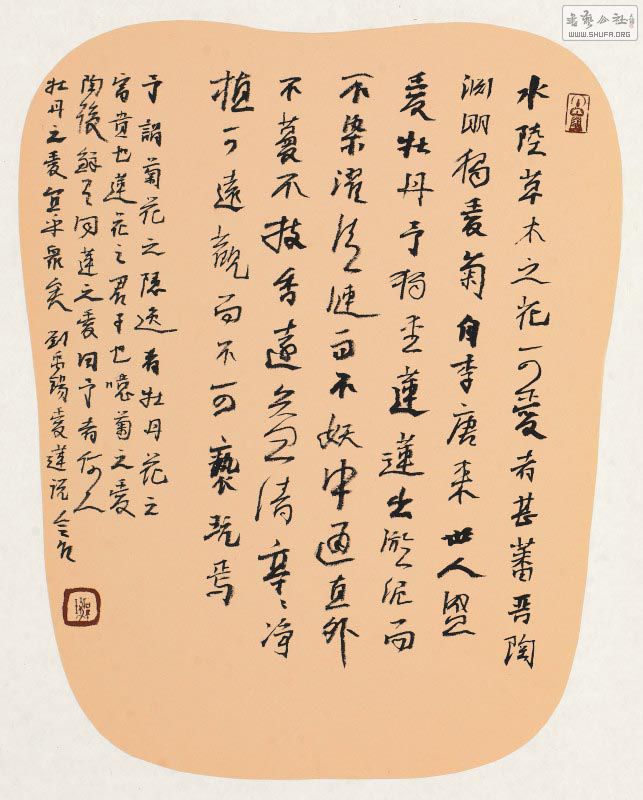 水陸草木之花可愛者甚蕃晋陶
渊明獨愛菊自李唐来世人盛
愛牡丹予獨爱蓮蓮出淤泥而
不染濯清漣而不妖中通直外
不蔓不枝香遠益清亭々净
植可遠觀而不可褻玩焉
予謂菊花之隱逸者牡丹花之
富貴也蓮花之君子也噫菊之愛
陶後鮮有聞蓮之愛同予者何人
牡丹之愛宜乎衆矣 劉禹錫愛蓮説
書藝公社
WWW.SHUFA.ORG